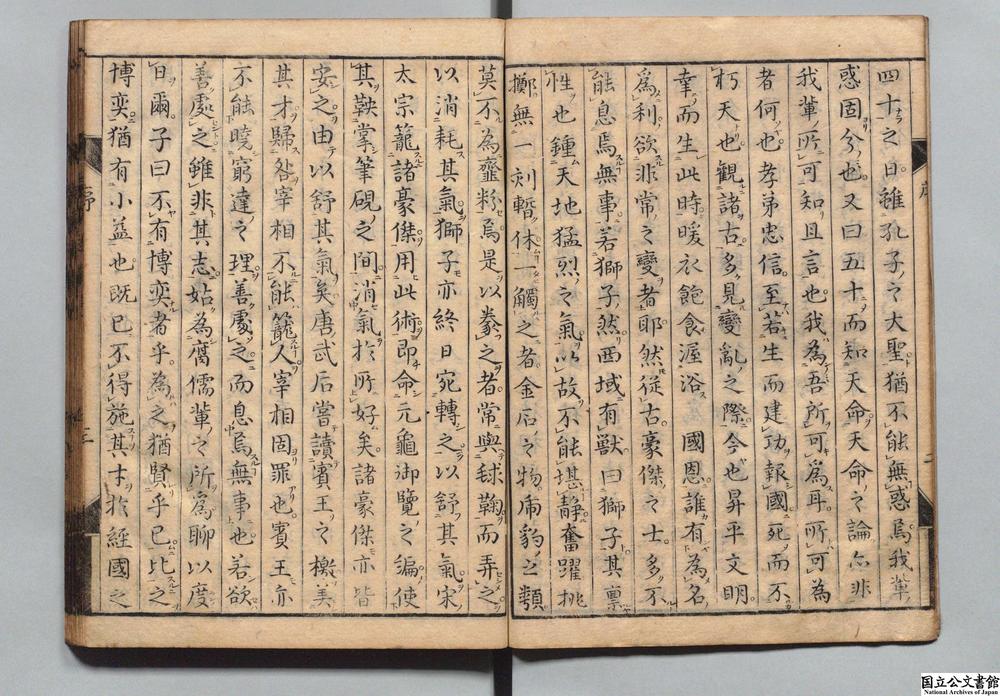 四十之日雖孔子之大聖猶不能無惑焉我輩
惑固分也又曰五十而知天命天命之論亦非
我輩所可知且言也我為吾所可為耳所可為
者何也孝弟忠信至若生而建功報國死而不
朽天也観諸古多見變亂之際今也昇平文明
幸而生此時暖衣飽食渥浴 國恩誰有為名
為利欲非常之變者耶然従古豪傑之士多不
能息焉無事若獅子然西域有獸曰獅子其稟
性也鍾天地猛烈之氣以故不能堪靜奮躍挑
擲無一刻暫休一觸之者金石之物虎豹之類
序
二
莫不為虀粉焉是以豢之者常與毬鞠而弄之
以消耗其氣獅子亦終日宛轉之以舒其氣宋
太宗籠諸豪傑用此術即命元龜御覽之編使
其鞅掌筆硯之間消氣於所好矣諸豪傑亦皆
安之由以舒其氣矣唐武后嘗讀賓王之檄美
其才歸咎宰相不能籠人宰相固罪也賓王亦
不能曉窮達之理善處之而息焉無事也若欲
善處之雖非其志姑為腐儒輩之所為聊以度
日爾子曰不有博奕者乎為之猶賢乎已比之
博奕猶有小益也既已不得施其才於經國之
序
三
国立公文書館
National Archives of Japan